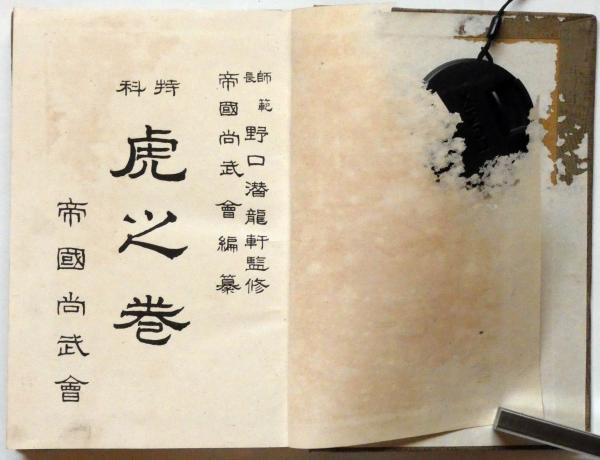 師範長 野口潜龍軒監修
帝國尚武會編纂
特科
虎之巻
帝國尚武會